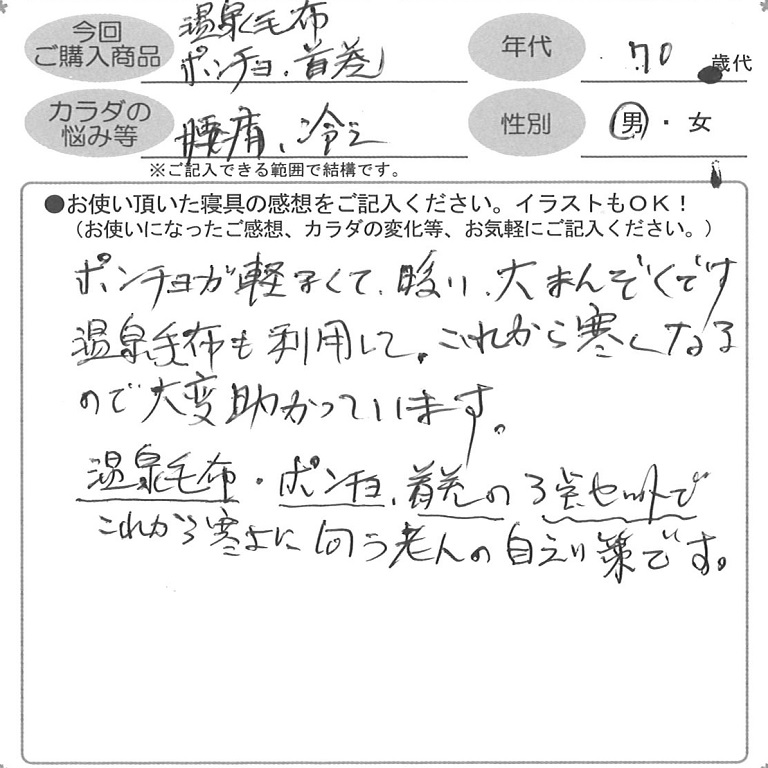 今回
ご購入商品
温泉毛布
ポンチョ、首巻
年代
70歳代
カラダの
悩み等
腰痛、冷え
性別
男・女
※ご記入できる範囲で結構です。
●お使い頂いた寝具の感想をご記入ください。イラストもOK!
(お使いになったご感想、カラダの変化等、お気軽にご記入ください。)
ポンチョが軽るくて、暖い、大まんぞくです
温泉毛布も利用して。これから寒くなる
ので大変助かっています。
温泉毛布・ポンチョ、首巻の3点セットで
これから寒さに向う老人の自えい策です。